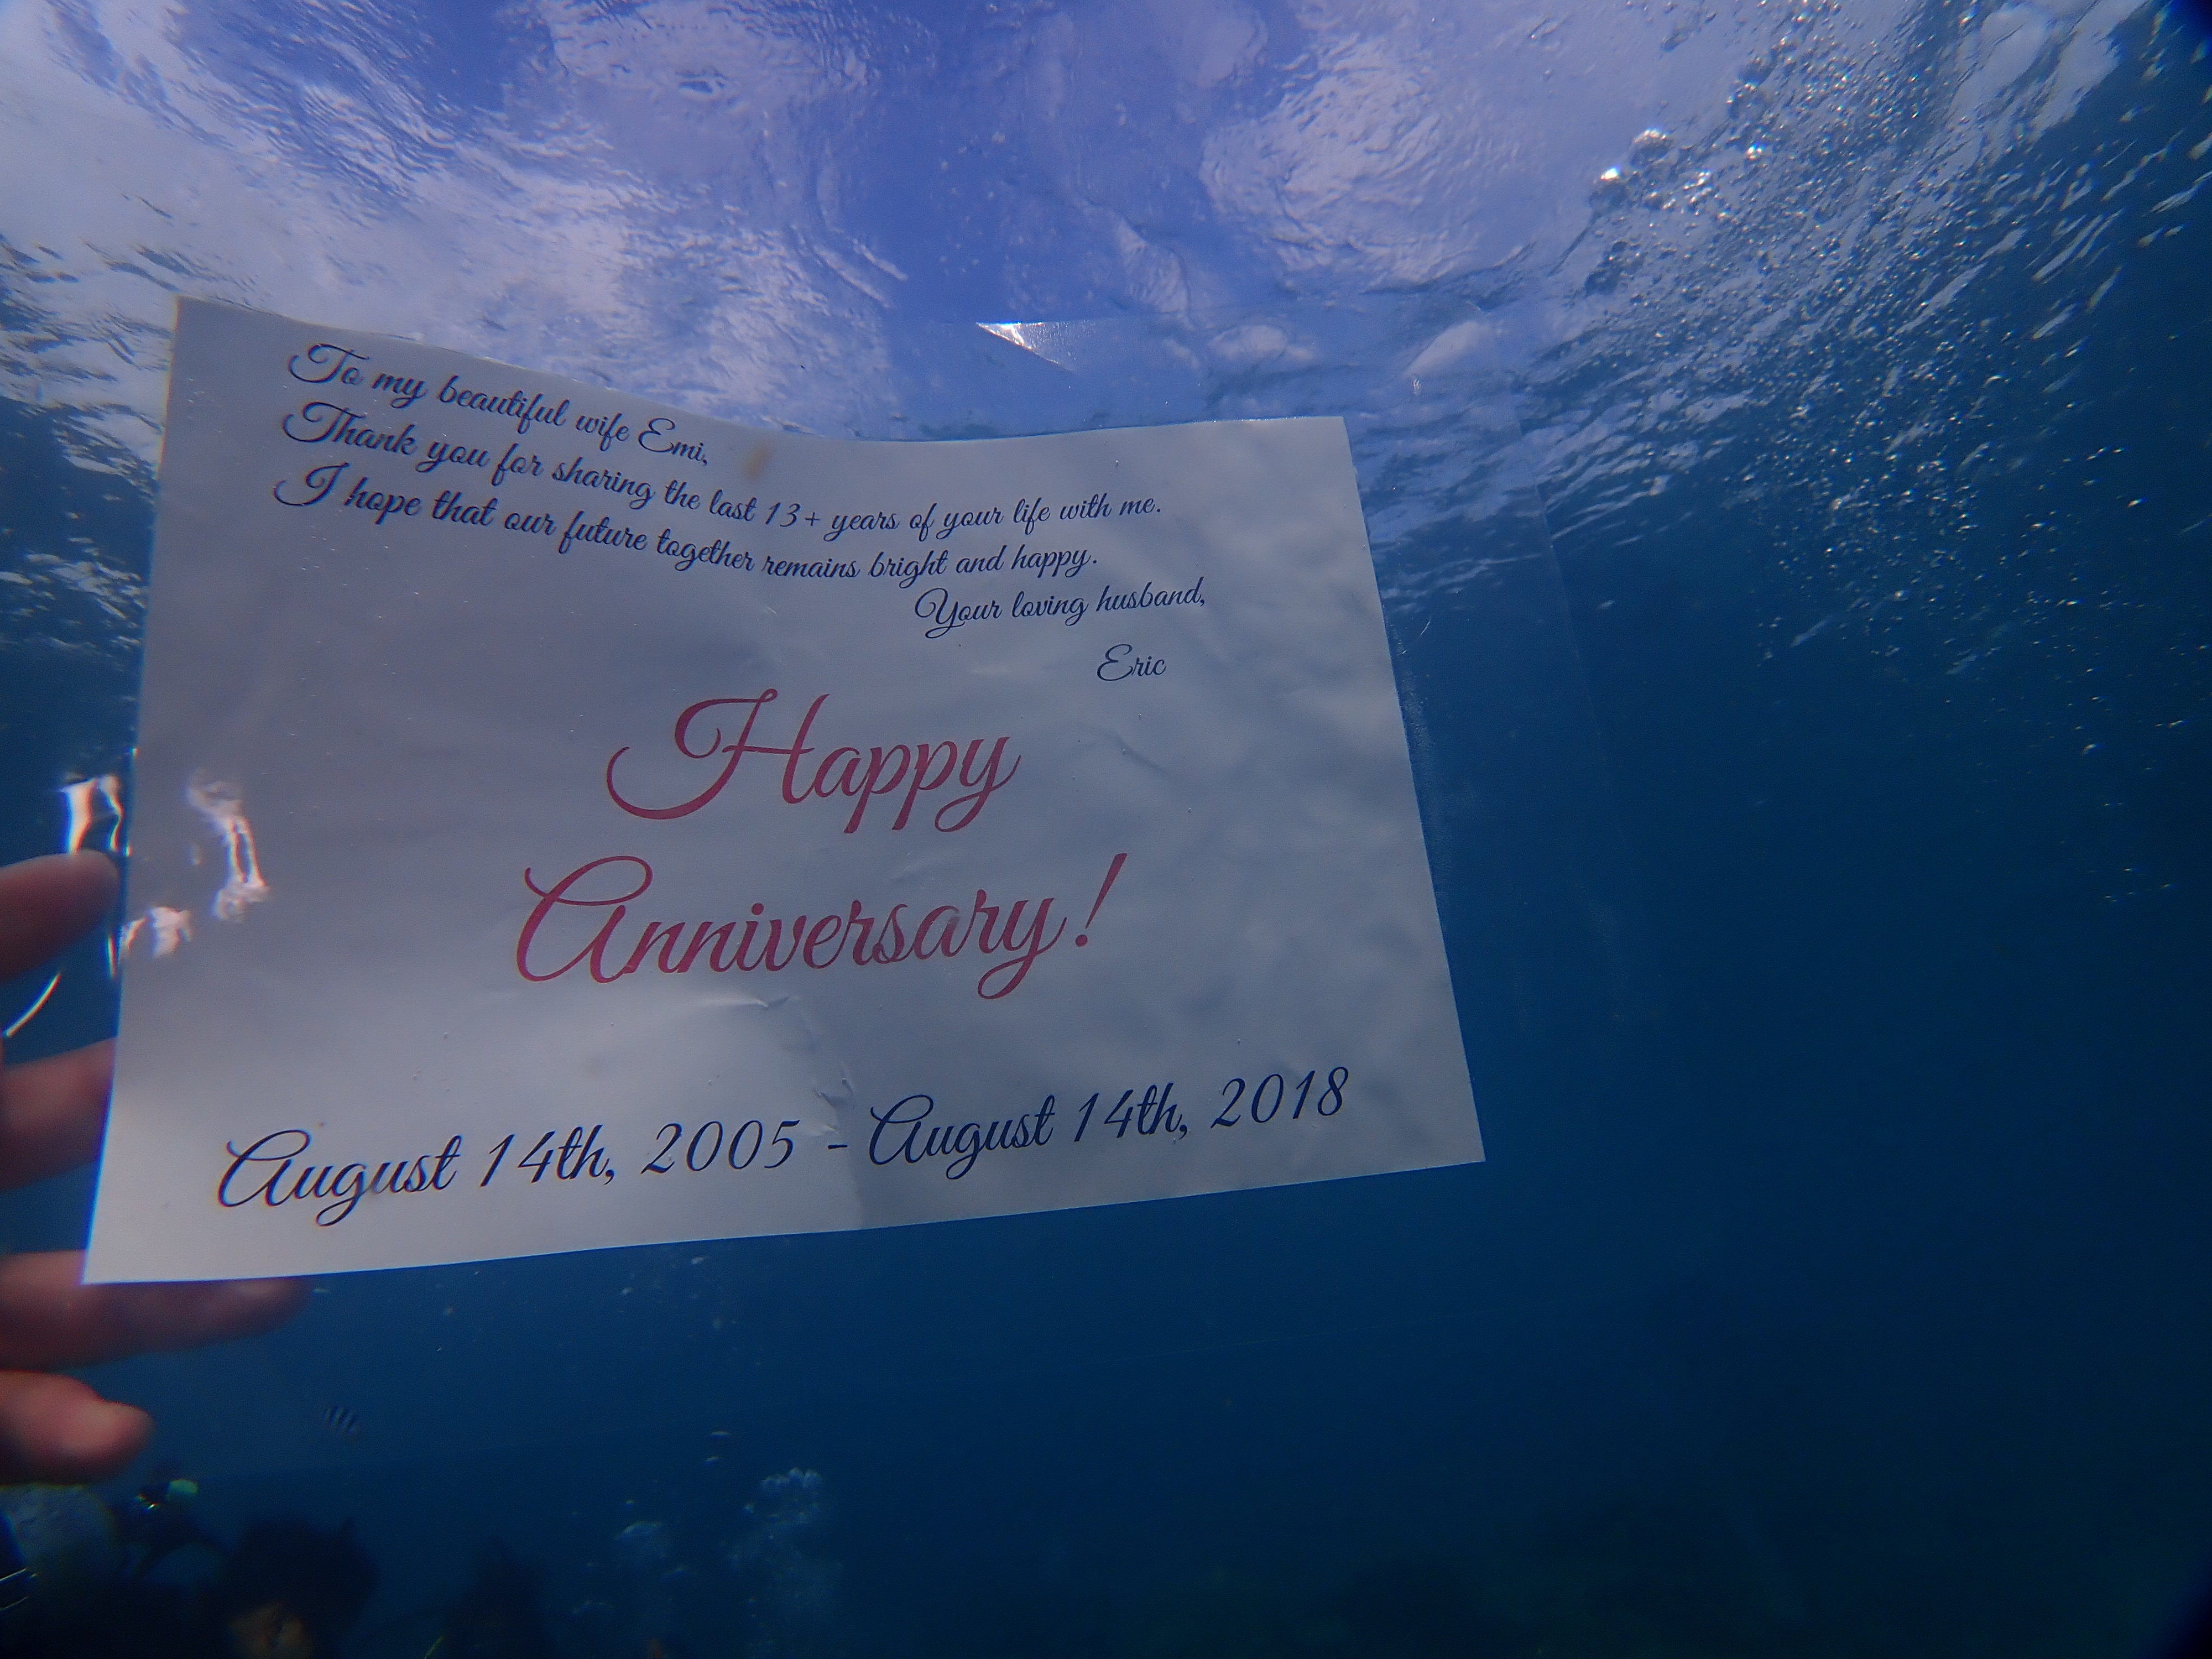 To my beautiful wife Emi,
Thank you for sharing the last 13+ years of your life with me.
I hope that our future together remains bright and happy.
Your loving husband,
Eric
Happy
Anniversary!
August 14th, 2005 - August 14th, 2018